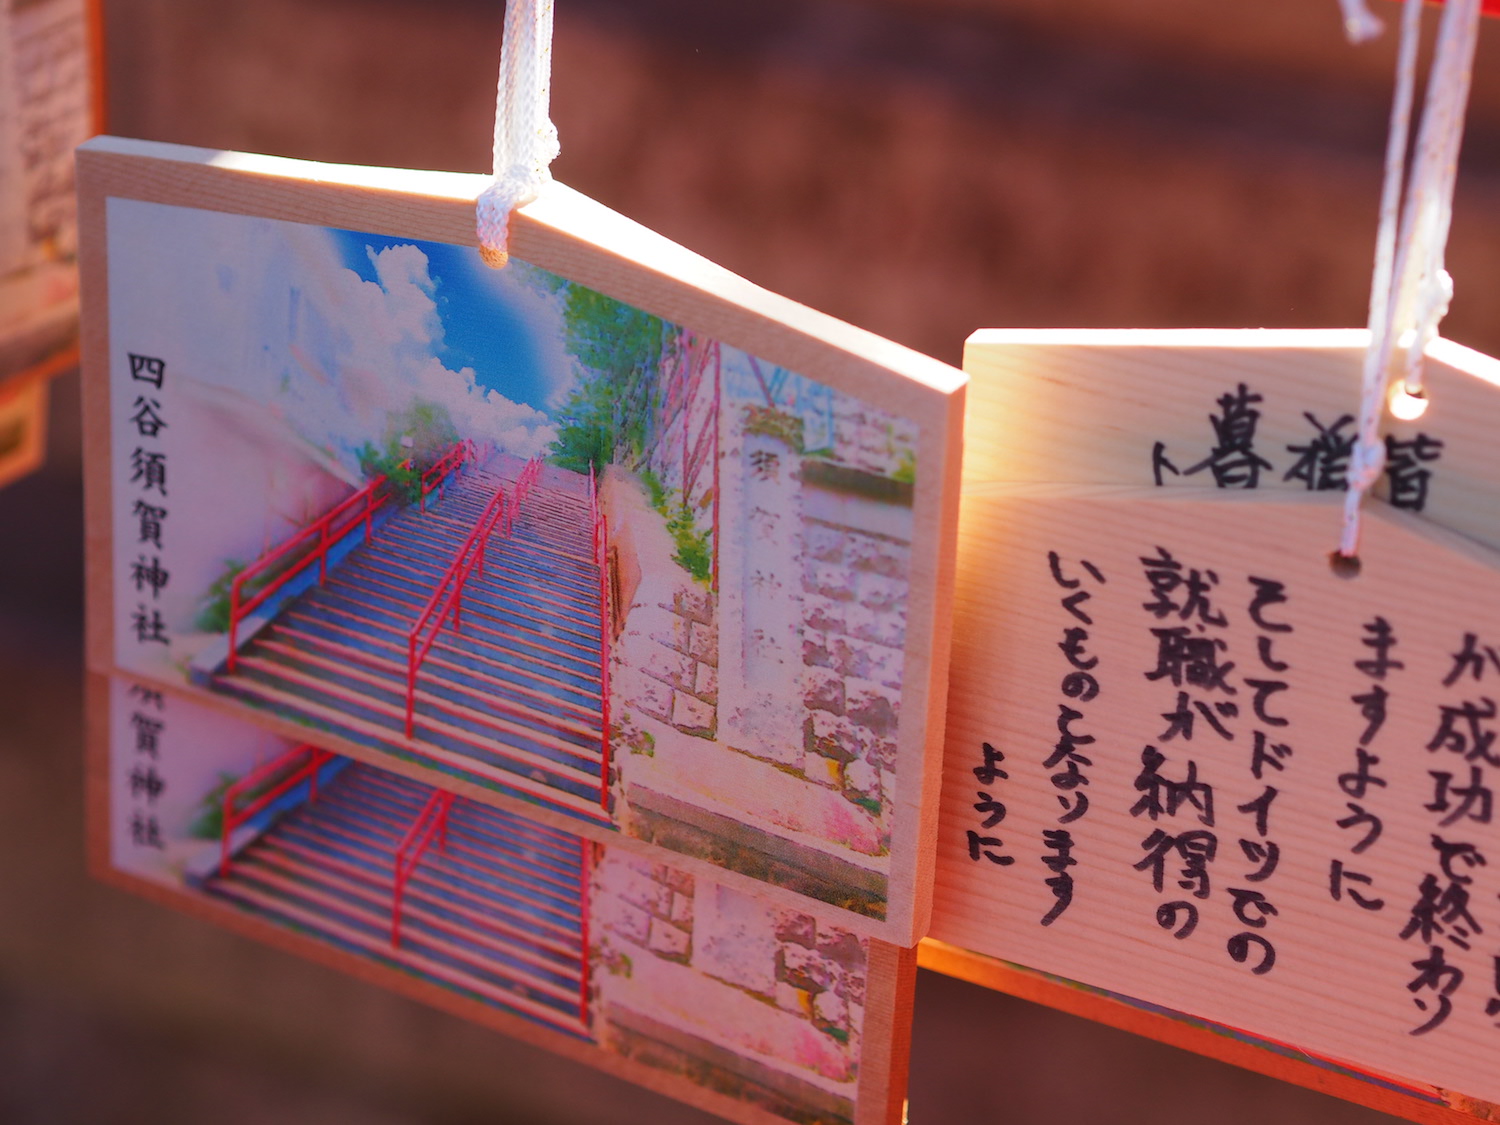 四谷須賀神社
須賀神社
賀神社
が成功で終わり
ますように
そしてドイツでの
就職が納得の
いくものとなります
ように